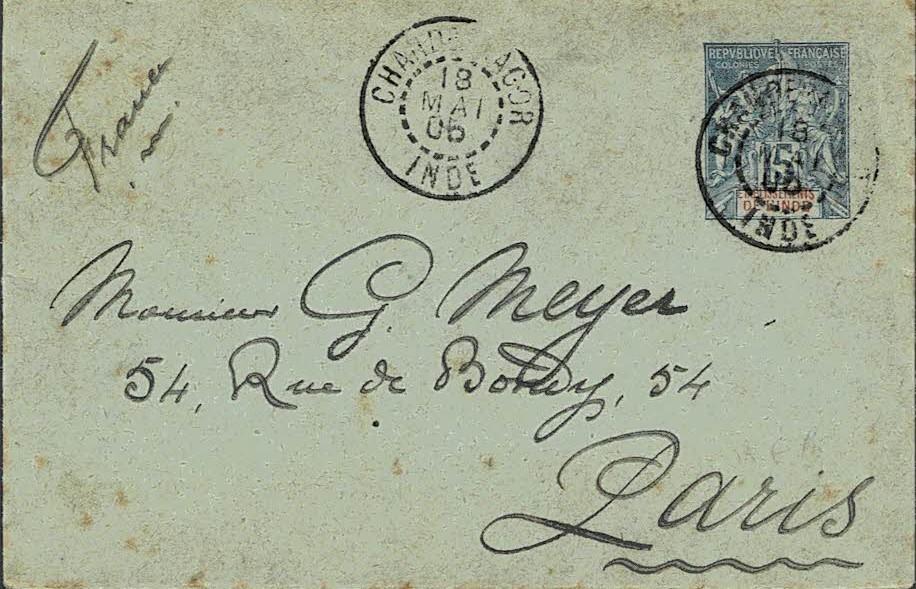 France
CHANDERNAGOR
18
MAI
06
INDE
REPVBLIQVE FRANÇAISE
COLONIES POSTES
18
15
ETABLISSEMENTS
DE L'INDE
INDE
Monsieur G. Meyer
54, Rue de Bondy, 54
Paris